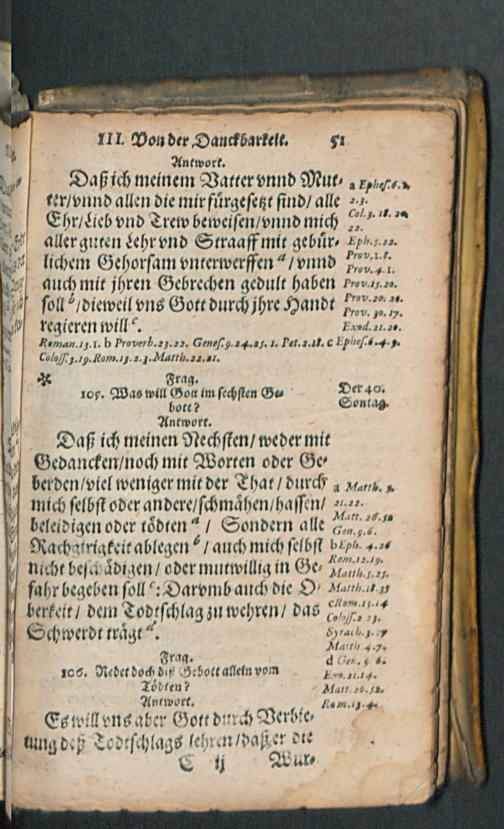 III. Von der Danckbarkeit. 51
Antwort.
Daß ich meinem Vatter vnnd Mut-
ter/vnnd allen die mir fürgesetzt sind/ alle
Ehr/Lieb vnd Trew beweisen/vnnd mich
aller guten Lehr vnd Straaff mit gebür-
lichem Gehorsam vnterwerffen a/ vnnd
auch mit jhren Gebrechen gedult haben
soll b/dieweil vns Gott durch jhre Handt
regieren will c.
a Ephes.6.1.
2.3.
Col.3.18.20
22.
Eph.5.22.
Prov.1.8.
Prov.4.1.
Prov.15.20.
Prov.20.20.
Prov.30.17.
Exod.21.20.
Roman.13.1. b Proverb.23.22. Genes.9.24.25. 1. Pet.2.18. c Ephes.6.4.9.
Coloss.3.19. Rom.13.2.3. Matth.22.21.
Frag.
105. Was will Gott im sechsten Ge-
bott?
Der 40.
Sontag.
Antwort.
Daß ich meinen Nechsten/ weder mit
Gedancken/noch mit Worten oder Ge-
berden/viel weniger mit der That/ durch
mich selbst oder andere/schmähen/hassen/
beleidigen oder tödten a/ Sondern alle
Rachgirigkeit ablegen b/ auch mich selbst
nicht beschädigen/ oder mutwillig in Ge-
fahr begeben soll c: Darvmb auch die O-
berkeit/ dem Todtschlag zu wehren/ das
Schwerdt trägt d.
a Matth. 5.
21.22.
Matt. 26.52
Gen.9.6.
b Eph. 4.26
Rom.12.19.
Matth.5.25.
Matth.18.35
c Rom.13.14
Coloss.2 23.
Syrach.3.27
Matth 4.7.
d Gen. 9. 6.
Exo.21.14.
Matt.26.52.
Rom.13.4.
Frag.
106. Redet doch diß Gebott allein vom
Tödten?
Antwort.
Es will vns aber Gott durch Verbie-
tung deß Todtschlags lehren/daß er die
C ij Wur-